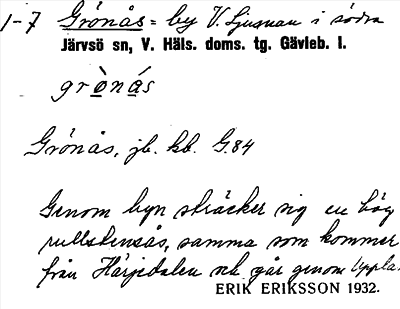 1-7 Grönås = by V. Ljusnan i södra
Järvsö sn, V. Häls. doms. tg. Gävleb. l.
grònás
Grönås, jb. kb. G.84
Genom byn sträcker sig en hög
rullstensås, samma som kommer
från Härjedalen och går genom Uppla.
ERIK ERIKSSON 1932.